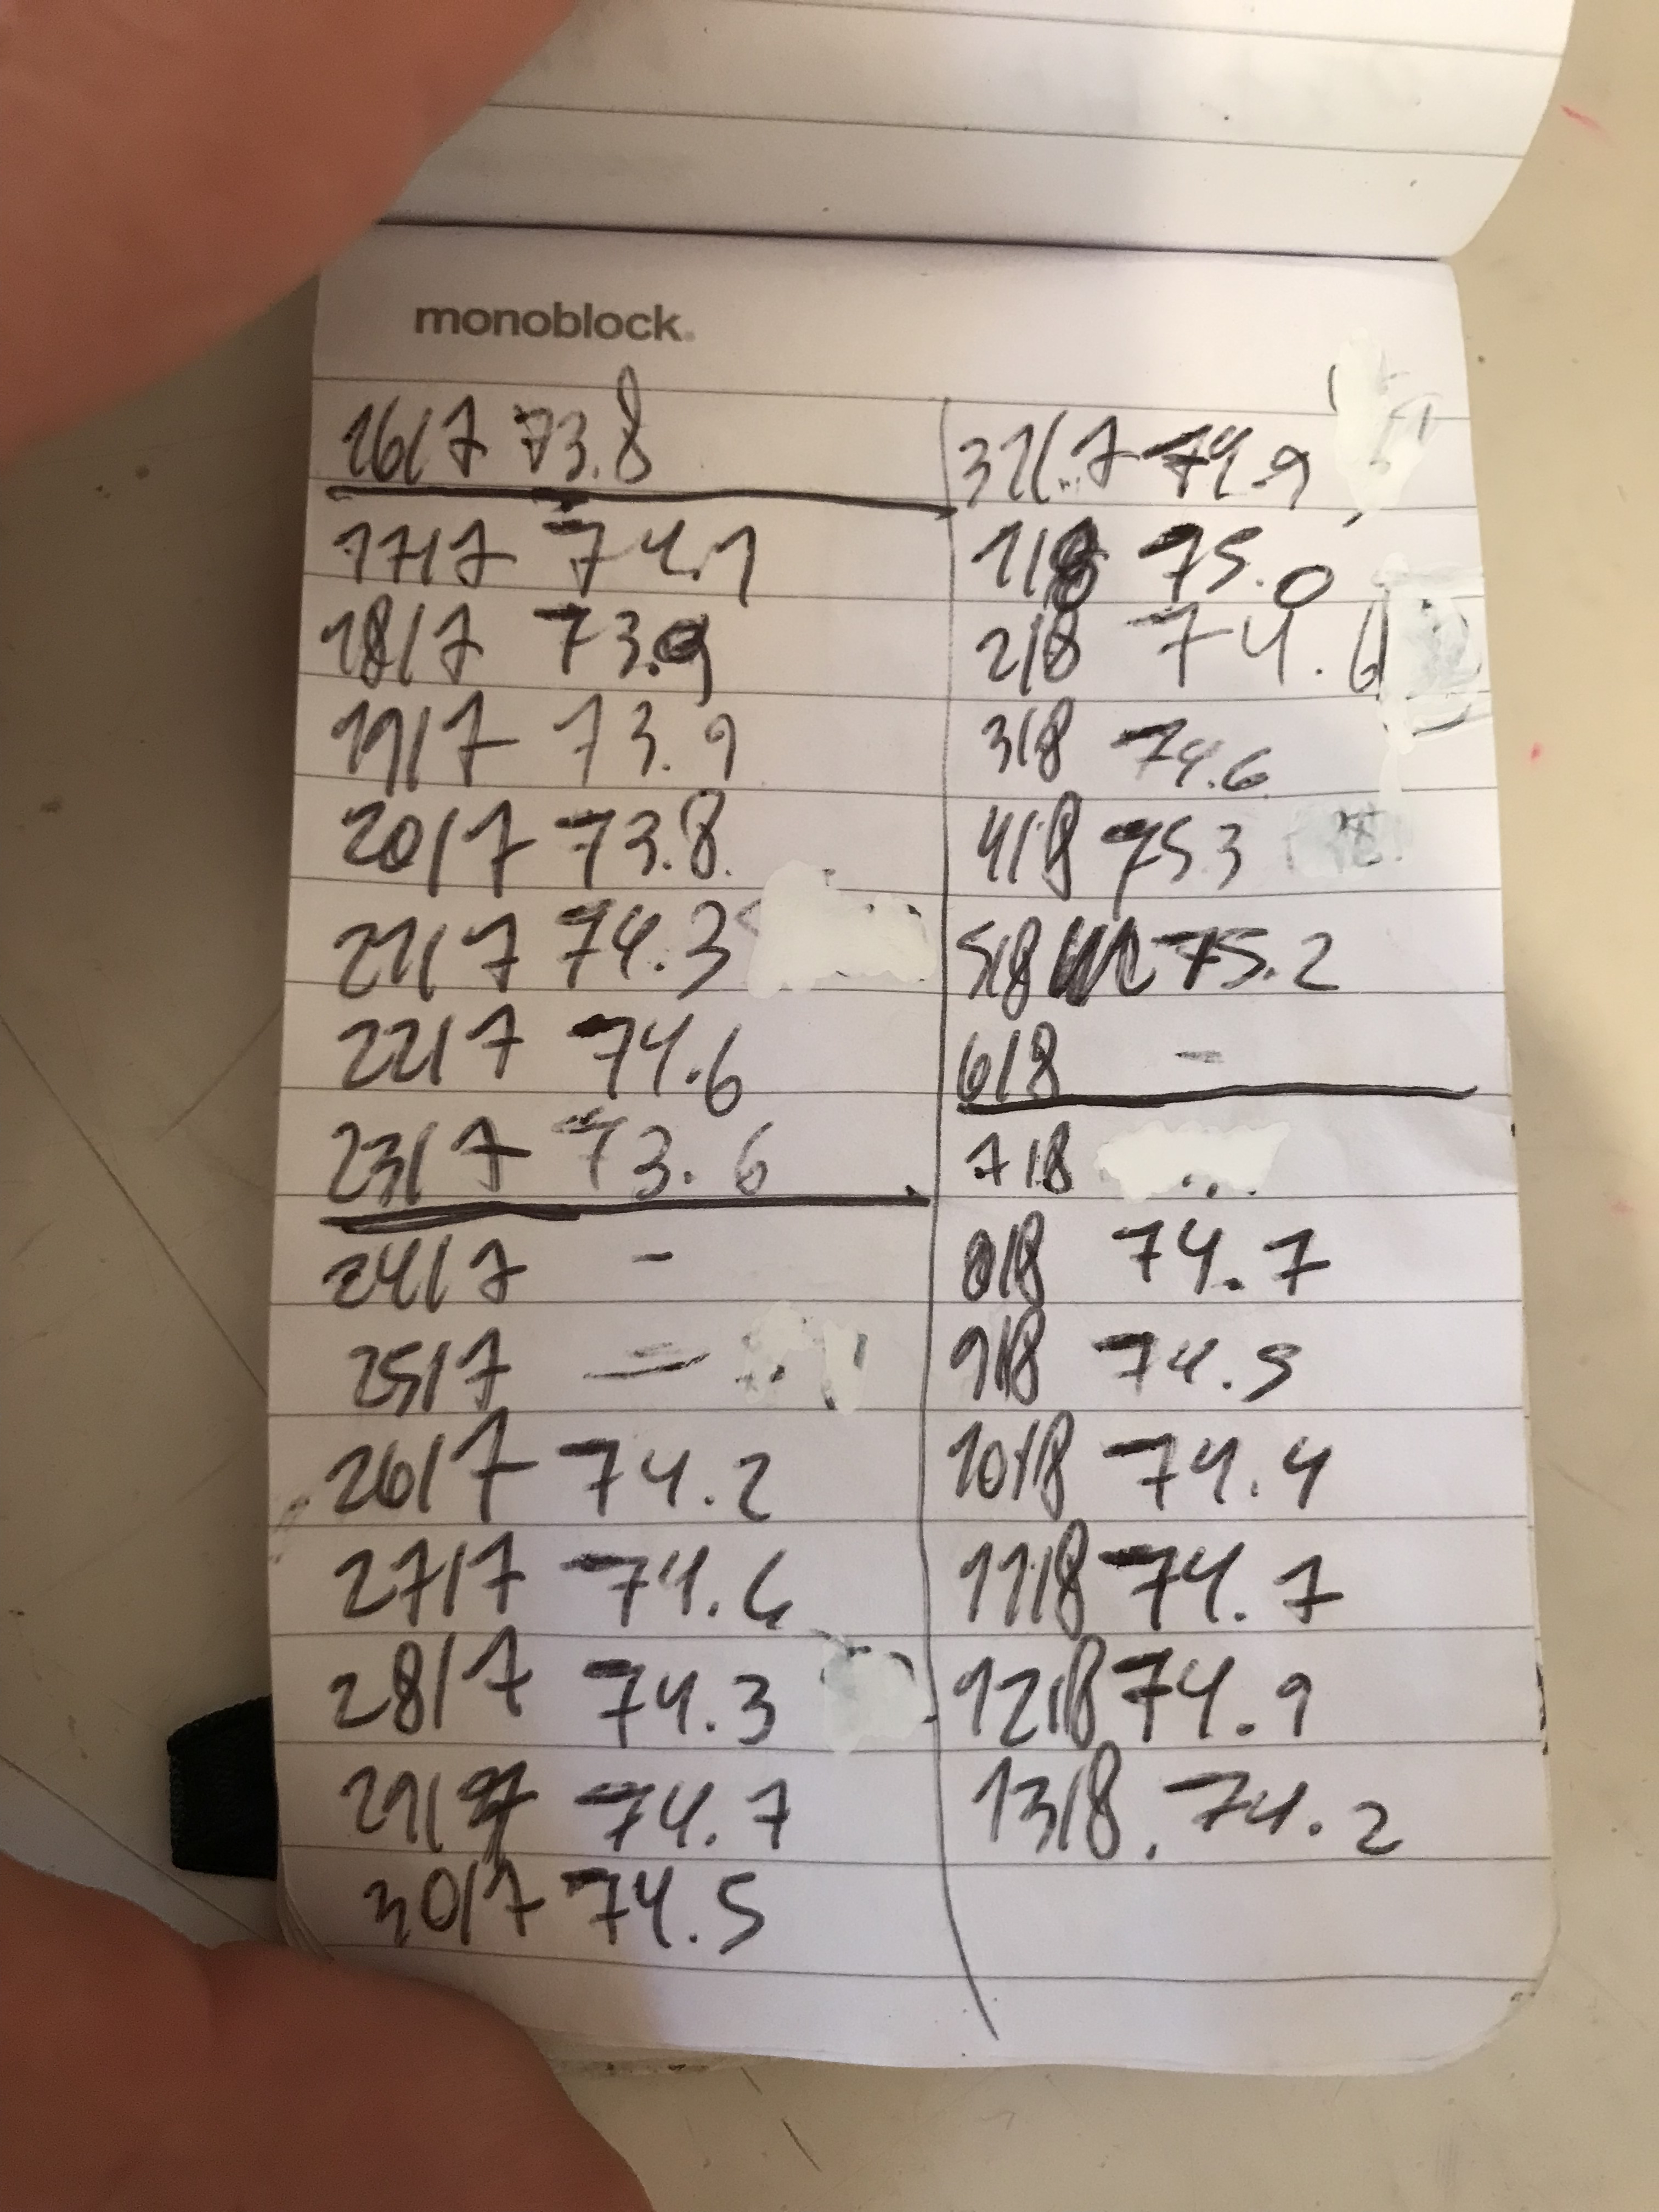 monoblock.
16/7 73.8
17/7 74.1
18/7 73.9
19/7 73.9
20/7 73.8
21/7 74.3
22/7 74.6
23/7 73.6
24/7 -
25/7 -
26/7 74.2
27/7 74.6
28/7 74.3
29/7 74.7
30/7 74.5
31/7 74.9
1/8 75.0
2/8 74.6
3/8 74.6
4/8 75.3
5/8 75.2
6/8 -
7/8
8/8 74.7
9/8 74.5
10/8 74.4
11/8 74.7
12/8 74.9
13/8. 74.2